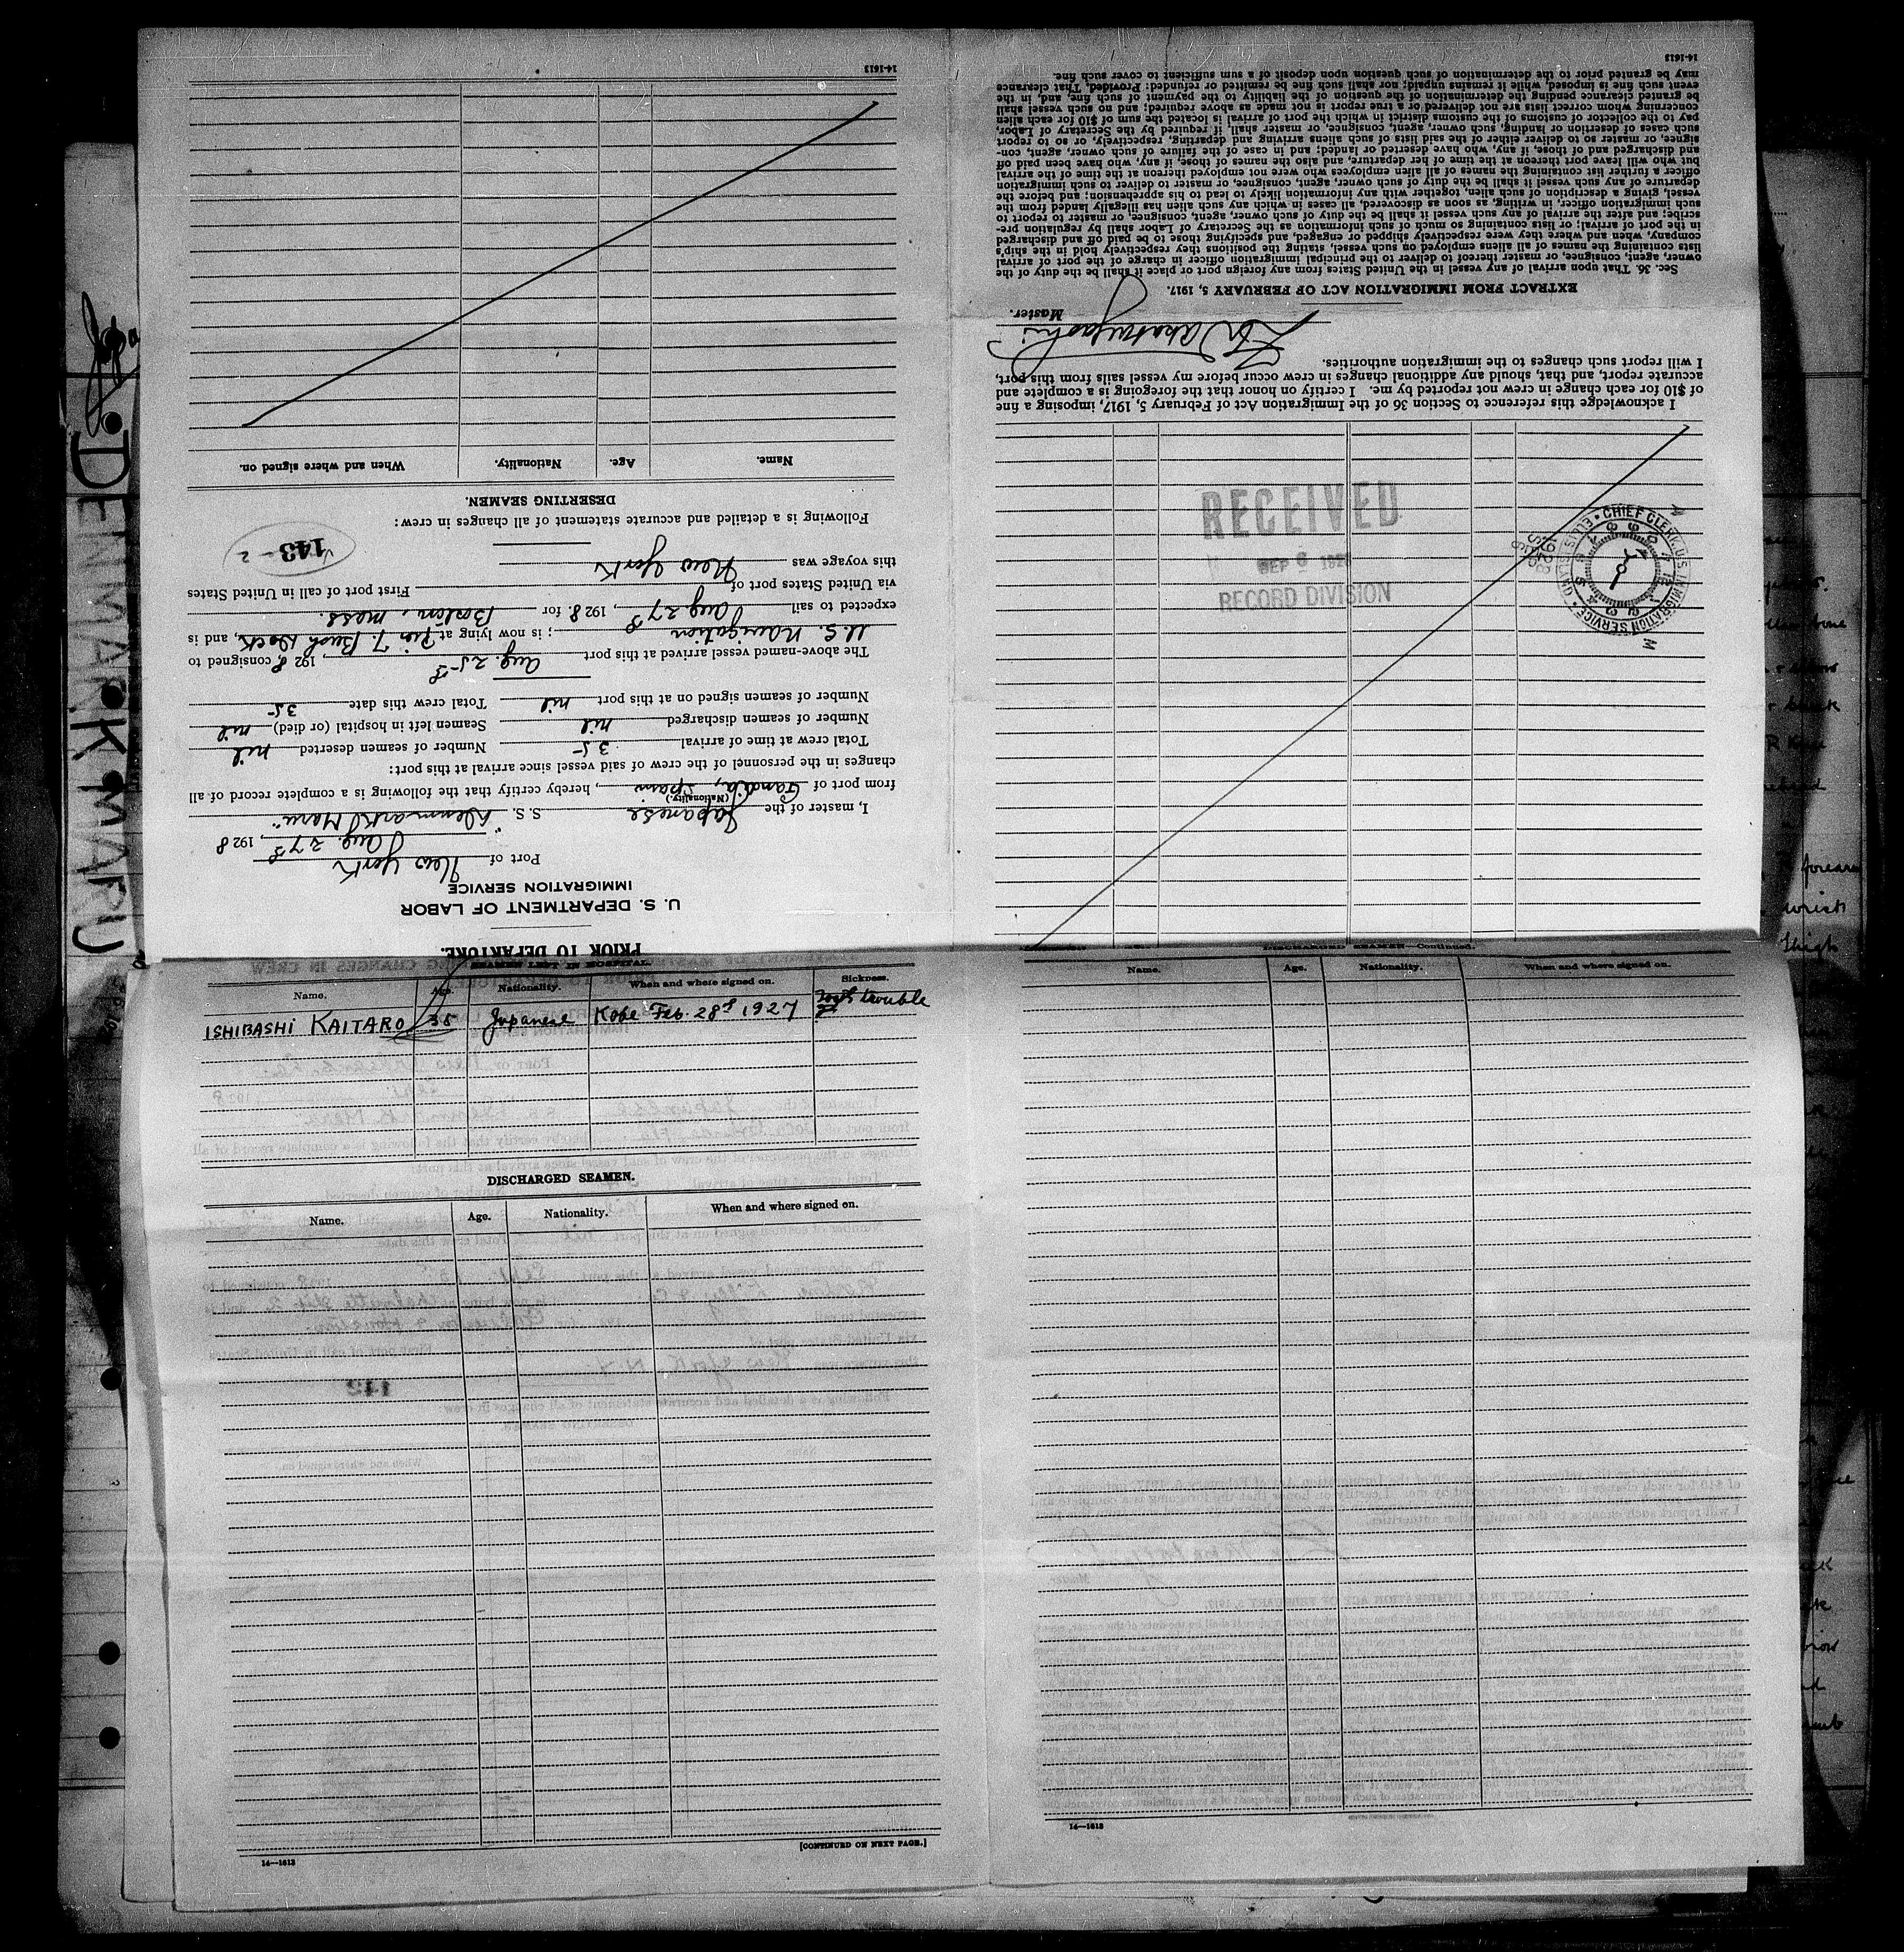 PRIOR TO DEPARTURE.
U. S. DEPARTMENT OF LABOR
IMMIGRATION SERVICE
Port of New York
Aug. 27th, 1928
I, master of the Japanese S. S. "Denmark Maru"
(Nationality.)
from port of Gandia, Spain, hereby certify that the following is a complete record of all
changes in the personnel of the crew of said vessel since arrival at this port:
Total crew at time of arrival 35 Number of seamen deserted nil
Number of seamen discharged nil Seamen left in hospital (or died) nil
Number of seamen signed on at this port nil Total crew this date 35
The above-named vessel arrived at this port Aug. 25th, 1928, consigned to
U.S. Navigation; is now lying at Pier 7. Bush Dock, and is
expected to sail Aug 27th, 1928. for Boston, Mass.
via United States port of First port of call in United States
this voyage was New York
143-2
Following is a detailed and accurate statement of all changes in crew:
DESERTING SEAMEN.
Name. Age. Nationality. When and where signed on.
14-1613
I acknowledge this reference to Section 36 of the Immigration Act of February 5, 1917, imposing a fine
of $10 for each change in crew not reported by me. I certify on honor that the foregoing is a complete and
accurate report, and that, should any additional changes in crew occur before my vessel sails from this port,
I will report such changes to the immigration authorities.
Master.
EXTRACT FROM IMMIGRATION ACT OF FEBRUARY 5, 1917.
Sec. 36. That upon arrival of any vessel in the United States from any foreign port or place it shall be the duty of the
owner, agent, consignee, or master thereof to deliver to the principal immigration officer in charge of the port of arrival
lists containing the names of all aliens employed on such vessel, stating the positions they respectively hold in the ship's
company, when and where they were respectively shipped or engaged, and specifying those to be paid off and discharged
in the port of arrival; or lists containing so much of such information as the Secretary of Labor shall by regulation pre-
scribe; and after the arrival of any such vessel it shall be the duty of such owner, agent, consignee, or master to report to
such immigration officer, in writing, as soon as discovered, all cases in which any such alien has illegally landed from the
vessel, giving a description of such alien, together with any information likely to lead to his apprehension; and before the
departure of any such vessel it shall be the duty of such owner, agent, consignee, or master to deliver to such immigration
officer a further list containing the names of all alien employees who were not employed thereon at the time of the arrival
but who will leave port thereon at the time of her departure, and also the names of those, if any, who have been paid off
and discharged and of those, if any, who have deserted or landed; and in case of the failure of such owner, agent, con-
signee, or master so to deliver either of the said lists of such aliens arriving and departing, respectively, or so to report
such cases of desertion or landing, such owner, agent, consignee, or master shall, if required by the Secretary of Labor,
pay to the collector of customs of the customs district in which the port of arrival is located the sum of $10 for each alien
concerning whom correct lists are not delivered or a true report is not made as above required; and no such vessel shall
be granted clearance pending the determination of the question of the liability to the payment of such fine, and, in the
event such fine is imposed, while it remains unpaid; nor shall such fine be remitted or refunded: Provided, That clearance
may be granted prior to the determination of such question upon deposit of a sum sufficient to cover such fine.
14-1613
RECEIVED
SEP 6 1928
RECORD DIVISION
CHIEF CLERK, U.S. IMMIGRATION SERVICE
DENMARK MARU
SEAMEN LEFT IN HOSPITAL.
Name. Age. Nationality. When and where signed on. Sickness.
ISHIBASHI KAITARO 38 Japanese Kobe Feb. 28th 1927 trouble
DISCHARGED SEAMEN.
Name. Age. Nationality. When and where signed on.
[CONTINUED ON NEXT PAGE.]
14-1613
DISCHARGED SEAMEN—Continued.
Name. Age. Nationality. When and where signed on.
14-1613